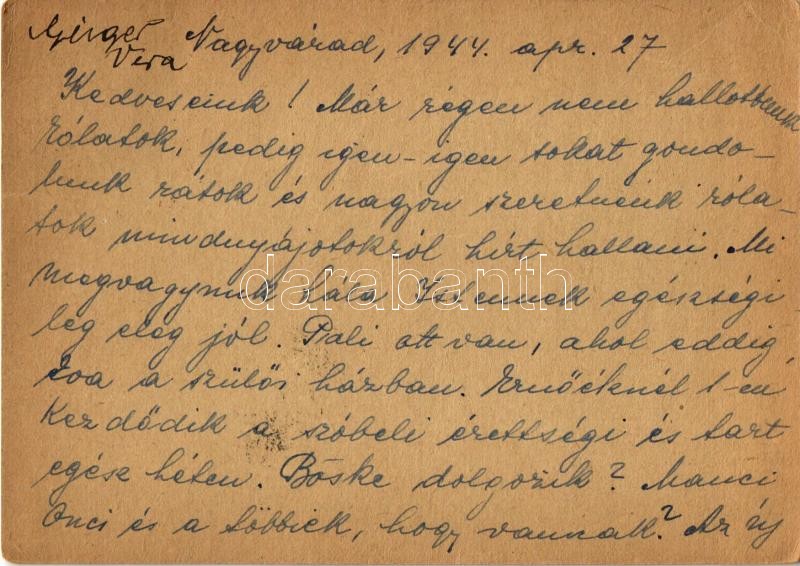 Vera
Nagyvárad, 1944. apr. 27
Kedveseink! Már régen nem hallottunk
rólatok, pedig igen-igen sokat gondo-
lunk rátok és nagyon szeretnénk róla-
tok mindnyájotokról hírt hallani. Mi
megvagyunk hála Istennek egészségi-
leg elég jól. Pali ott van, ahol eddig,
Éva a szülői házban. Ernőéknél 1-én
kezdődik a szóbeli érettségi és tart
egész héten. Böske dolgozik? Manci
Onci és a többiek, hogy vannak? Az új
darabanth.com